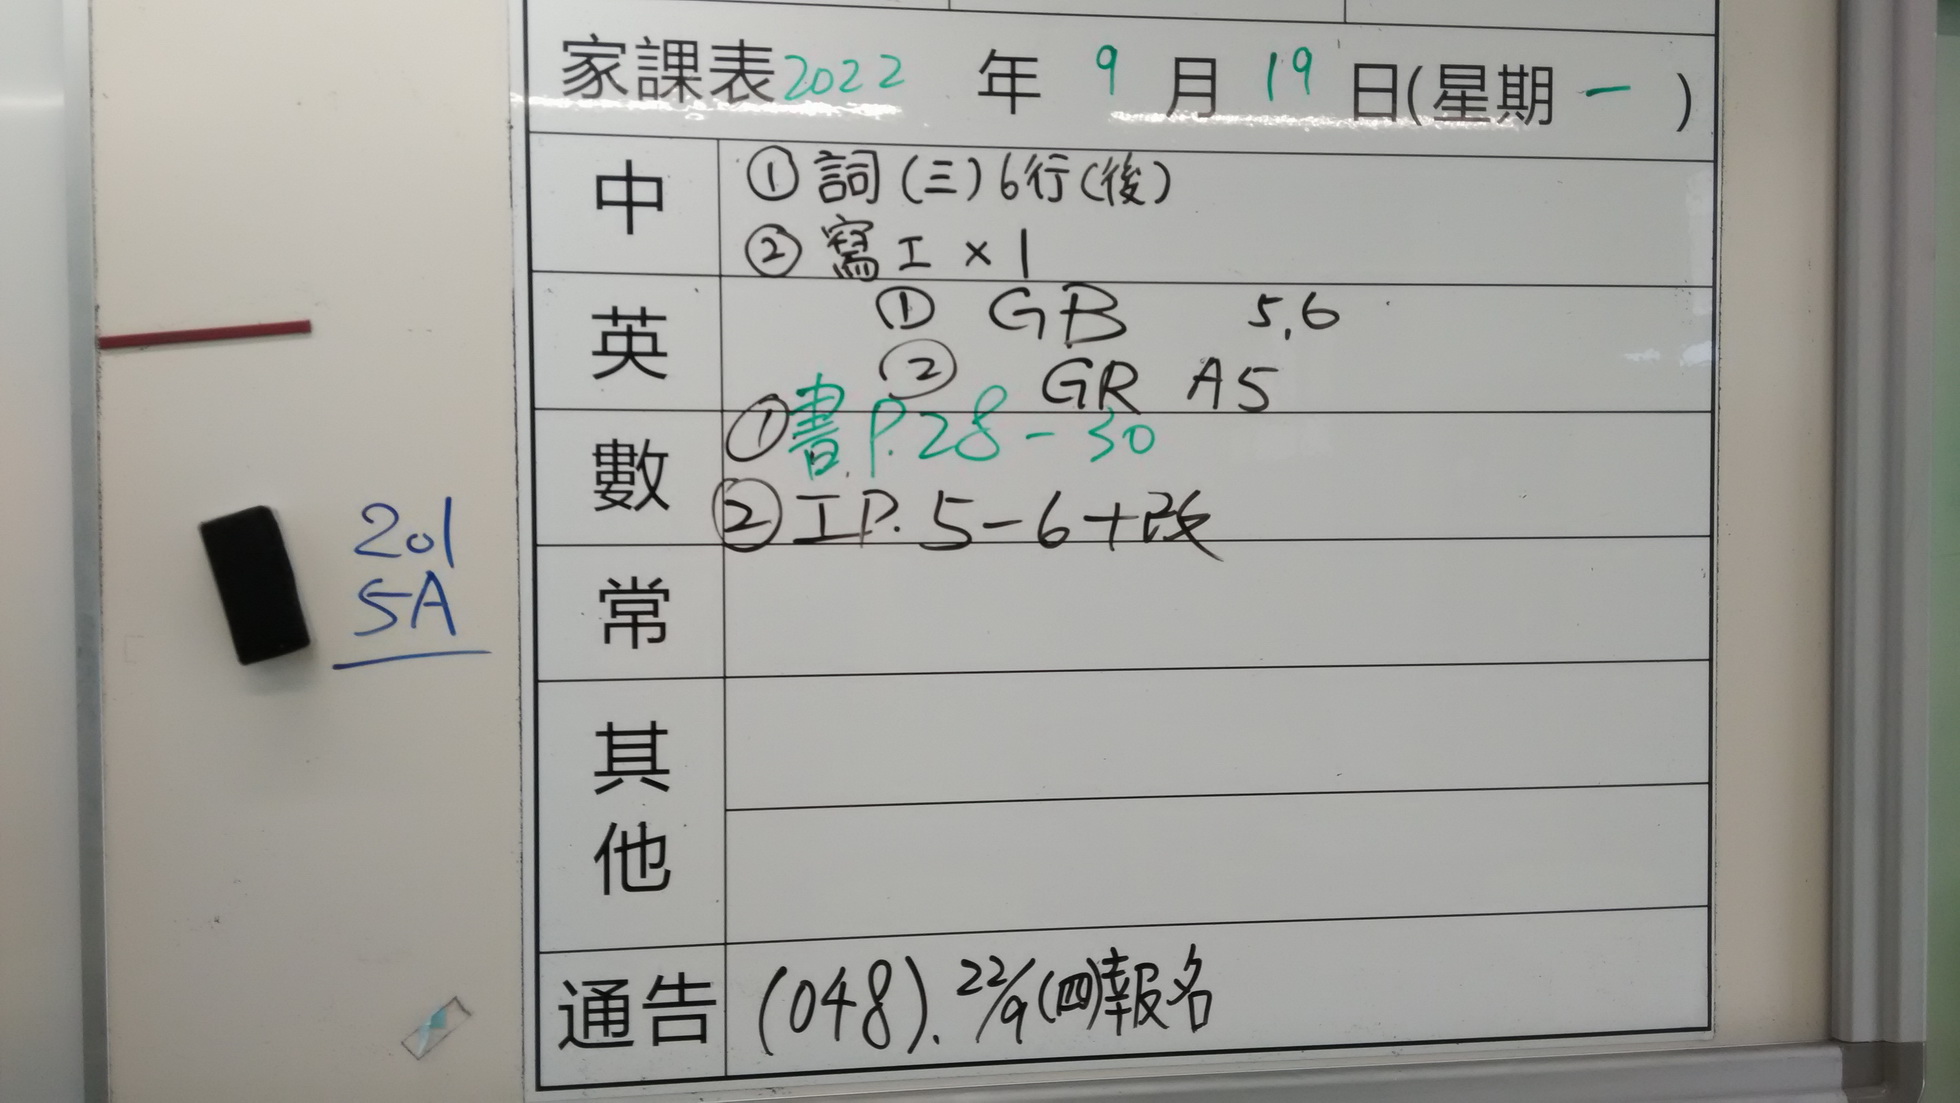 家課表2022 年 9 月 19 日(星期 一 )
中
① 詞(三)6行(後)
② 寫工 × 1
英
① GB 5,6
② GR A5
數
① 書P.28-30
② 工P.5-6+改
常
其他
通告
(048). 22/9(四)報名
201
5A